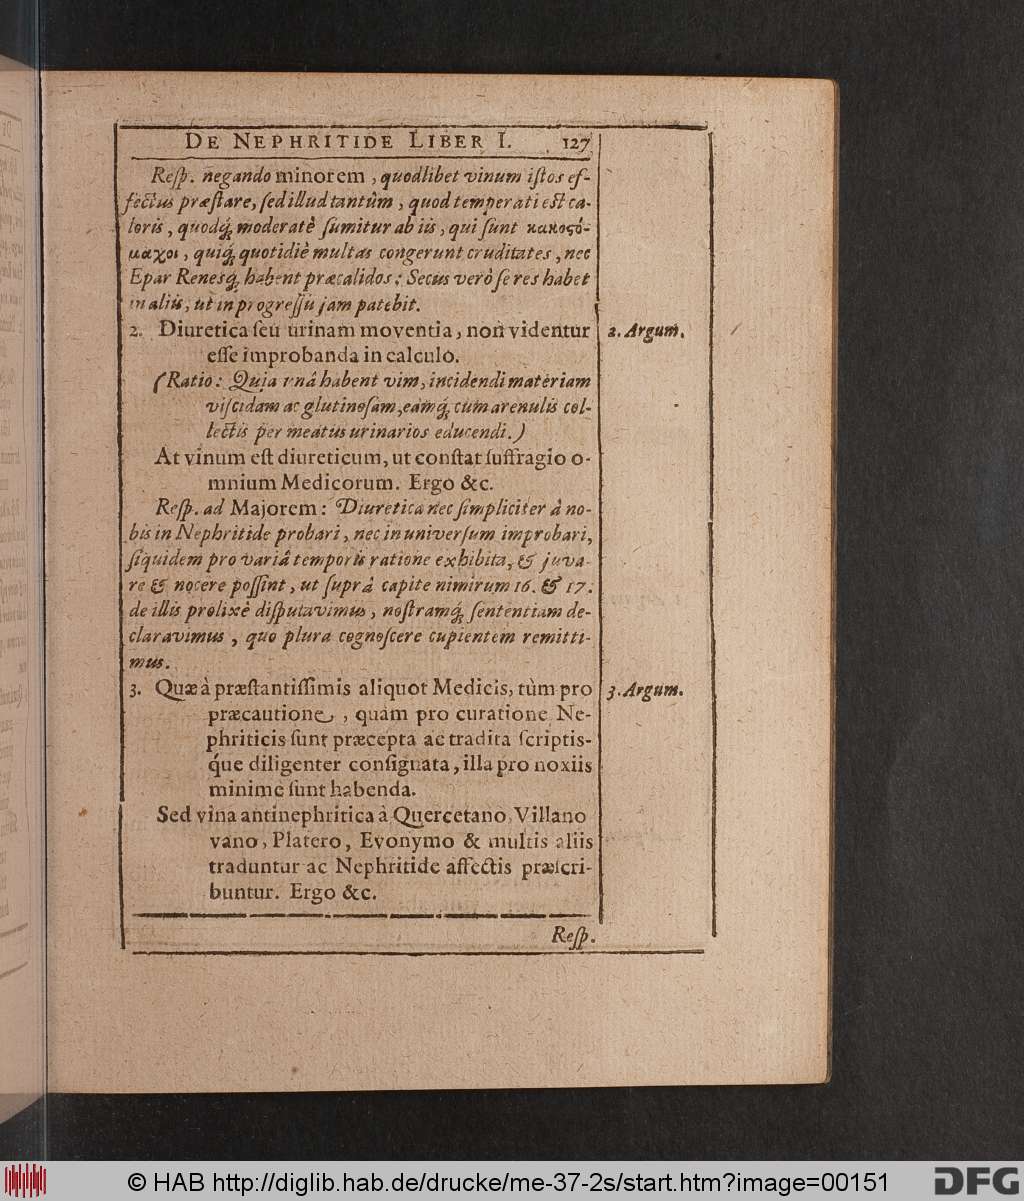 De Nephritide Liber I. 127
Reſp. negando minorem, quodlibet vinum iſtos ef-
fectus præſtare, ſed illud tantùm, quod temperati eſt ca-
loris, quodq́; moderatè ſumitur ab iis, qui ſunt κακοϛό-
μαχοι, quiq́; quotidiè multas congerunt cruditates, nec
Epar Renesq́; habent præcalidos: Secus verò ſe res habet
in aliis, ut in progreſſu jam patebit.
2. Diuretica ſeu urinam moventia, non videntur
eſſe improbanda in calculo.
2. Argum.
(Ratio: Quia unâ habent vim, incidendi materiam
viſcidam ac glutinoſam, eamq́; cum arenulis col-
lectis per meatus urinarios educendi.)
At vinum eſt diureticum, ut conſtat ſuffragio o-
mnium Medicorum. Ergo &c.
Reſp. ad Majorem: Diuretica nec ſimpliciter à no-
bis in Nephritide probari, nec in univerſum improbari,
ſiquidem pro variâ temporis ratione exhibita, & juva-
re & nocere poſſint, ut ſuprà capite nimirum 16. & 17.
de illis prolixè diſputavimus, noſtramq́; ſententiam de-
claravimus, quo plura cognoſcere cupientem remitti-
mus.
3. Quæ à præſtantiſſimis aliquot Medicis, tùm pro
præcautione, quàm pro curatione Ne-
phriticis ſunt præcepta ac tradita ſcriptis-
q́ue diligenter conſignata, illa pro noxiis
minimè ſunt habenda.
3. Argum.
Sed vina antinephritica à Quercetano, Villano
vano, Platero, Evonymo & multis aliis
traduntur ac Nephritide affectis præſcri-
buntur. Ergo &c.
Reſp.
© HAB http://diglib.hab.de/drucke/me-37-2s/start.htm?image=00151
DFG